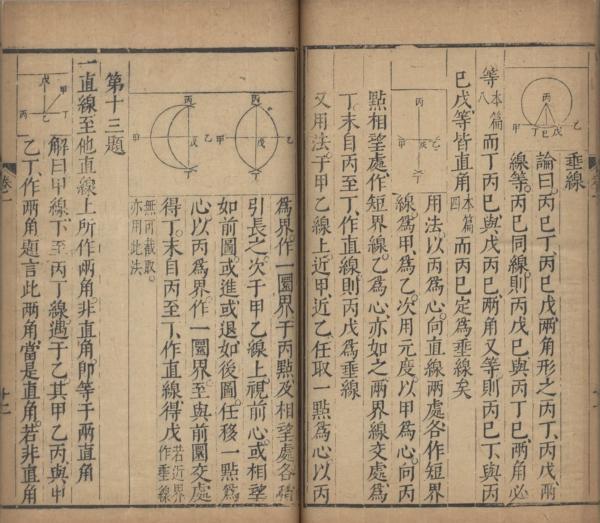 垂線
論曰丙巳丁丙巳戊兩角形之丙丁丙戊兩
線等丙巳同線則丙戊巳與丙丁巳兩角必
等本篇八而丁丙巳與戊丙巳兩角又等則丙巳丁與丙
巳戊等皆直角本篇四而丙巳定為垂線矣
用法以丙為心向直線兩處各作短界
線為甲為乙次用元度以甲為心向丙
點相望處作短界線乙為心亦如之兩界線交處為
丁末自丙至丁作直線則丙戊為垂線
又用法于甲乙線上近甲近乙任取一點為心以丙
丙
甲 丁 巳 戊 乙
丙
甲 戊 乙
丁
為界作一圜界于丙點及相望處各稍
引長之次于甲乙線上視前心或相望
如前圖或進或退如後圖任移一點為
心以丙為界作一圜界至與前圜交處
得丁末自丙至丁作直線得戊若近界作垂線
無可截取亦用此法
丙
甲 戊 乙
丁
丙
甲 戊 乙
丁
第十三題
一直線至他直線上所作兩角非直角即等于兩直角
解曰甲線下至丙丁線遇于乙其甲乙丙與甲
乙丁作兩角題言此兩角當是直角若非直角
戊 甲
丙 乙 丁
卷一